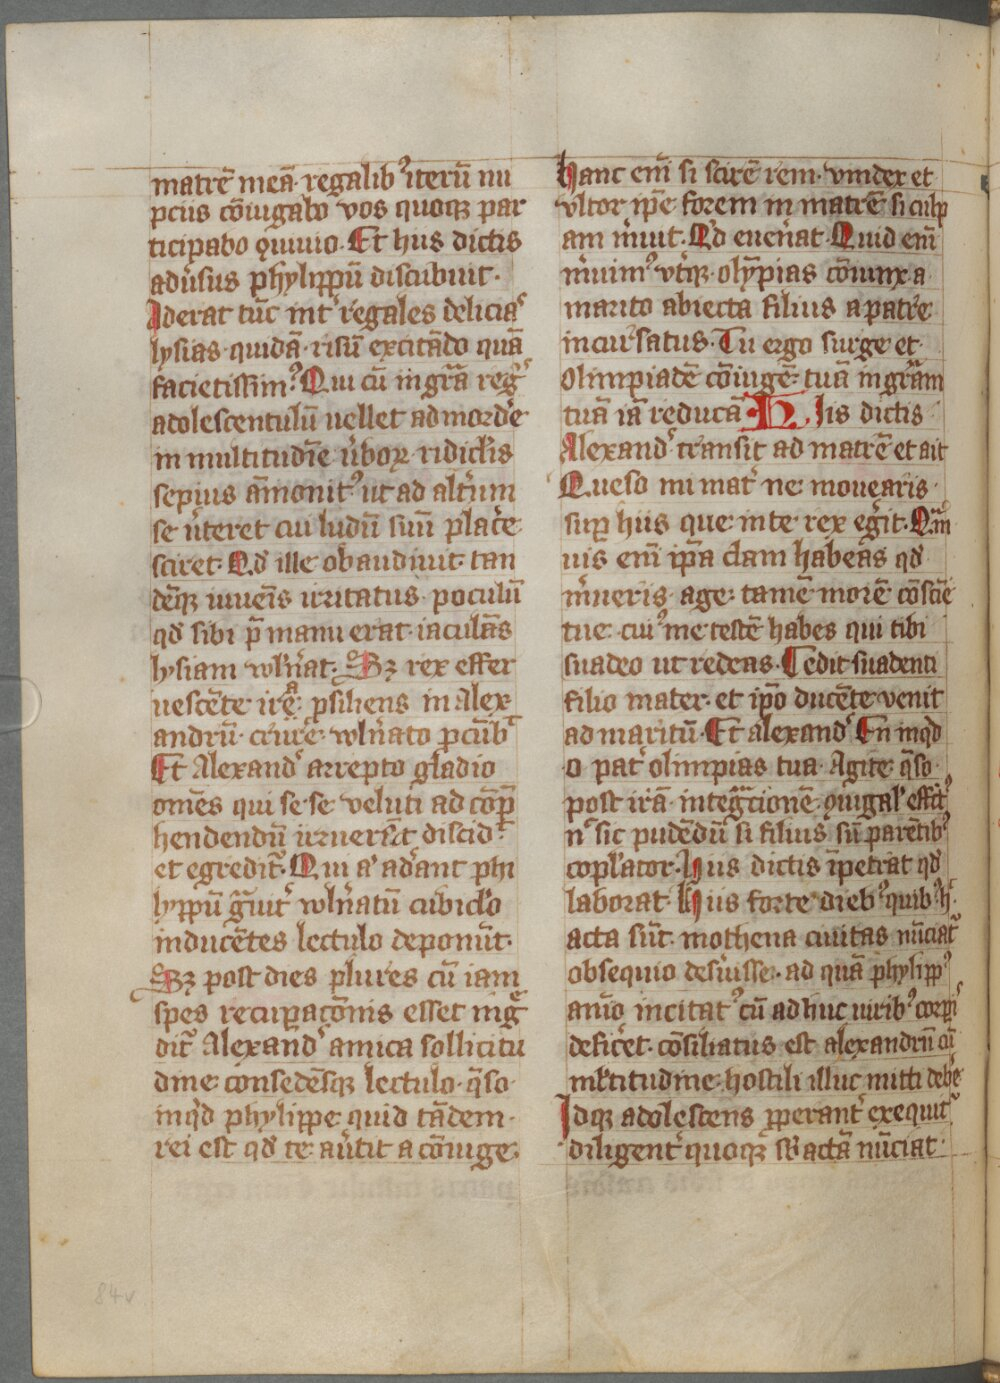 matrē meā· regalib⁹ iterū nu
pciis cōiugabo vos quoqꝫ par
ticipabo ꝯuiuio· Et hiis dictis
adu̓sus phylippū discubuit·
Iderat tūc int̓ regales delicias
lysias quidā· risū excitādo quā
facietissim⁹· Qui cū in gr̄a reg̓
adolescentulū uellet admord̓e
in multitudīe u̓boꝝ ridicl̓is
sepius āmonit⁹ ut ad alt̓ium
se u̓teret cui ludū suū plac̓e
sciret· Qd̓ ille obaudiuit· tan
dēqꝫ iuuēis irritatus· poculū
qd̓ sibi p̄ manu erat· iaculās
lysiam wln̓at· Sꝫ rex effer
uescēte irę· ꝓsiliens in Alex
andrū· crur̓e wln̓ato ꝓcūb̓
Et Alexand̓ arrepto gladio
om̄es qui se se veluti ad cōp̄
hendendū irruer̄t discid̓
et egredit̓· Qui a̓ ad̓ant phi
lyppū gͣuit̓ wln̓atū cubicl̓o
inducētes lectulo deponūt·
Sꝫ post dies plures cū iam
spes recuꝑacōnis esset ing̓
dit̓ Alexand̓ amica sollicitu
dine consedēsqꝫ lectulo· q̄so
inqd̓ phylippe quid tādem·
rei est qd̓ te au̓tit a cōiuge
hanc em̄ si scirē rem· vindex et
vltor ip̄e forem in matrē si culp
am īuīt· Qd̓ euen̓at· Quid em̄
m̓uim⁹ vt̓qꝫ· olympias cōiunx a
marito abiecta filius a patre
incursatus· Tu ergo surge et
olimpiadē cōiugē tuā in gr̄am
tuā iā reducā· Hiis dictis
Alexand̓ transit ad matrē et ait
Queso mi mat̓ ne mouearis·
suꝑ hiis que in te rex eg̓it· Qm̄
uis em̄ ip̄a clam habeas qd̓
m̓ueris· age tamē morē cōsciē
tie· cui⁹ me testē habes qui tibi
suadeo ut redeas· Cedit suadenti
filio mater· et ip̄o ducēte venit
ad maritū· Et alexand̓ En inqd̓
o pat̓ olimpias tua· Agite q̄so·
post irā· integͣcionē ꝯiugal̓ effc̄t⁹
n̓ sic pudēdū si filius sū parētib⁹
copl̓ator· hiis dictis īpetrat qd̓
laborat· Hiis forte dieb⁹ quib⁹ h̓
acta sūt· mothena ciuitas nūciat̓
obsequio des̓uisse· ad quā phylipp⁹
aīo incitat⁹ cū ad huc uirib⁹ corꝑ̓
defic̓et· cōsiliatus est alexandrū cū
ml̓titudine hostili illuc mitti deb̓e
Idqꝫ adolescens ꝓperant̓ exequit̓
diligent̓ quoqꝫ sb̓actā nūciat·
84v